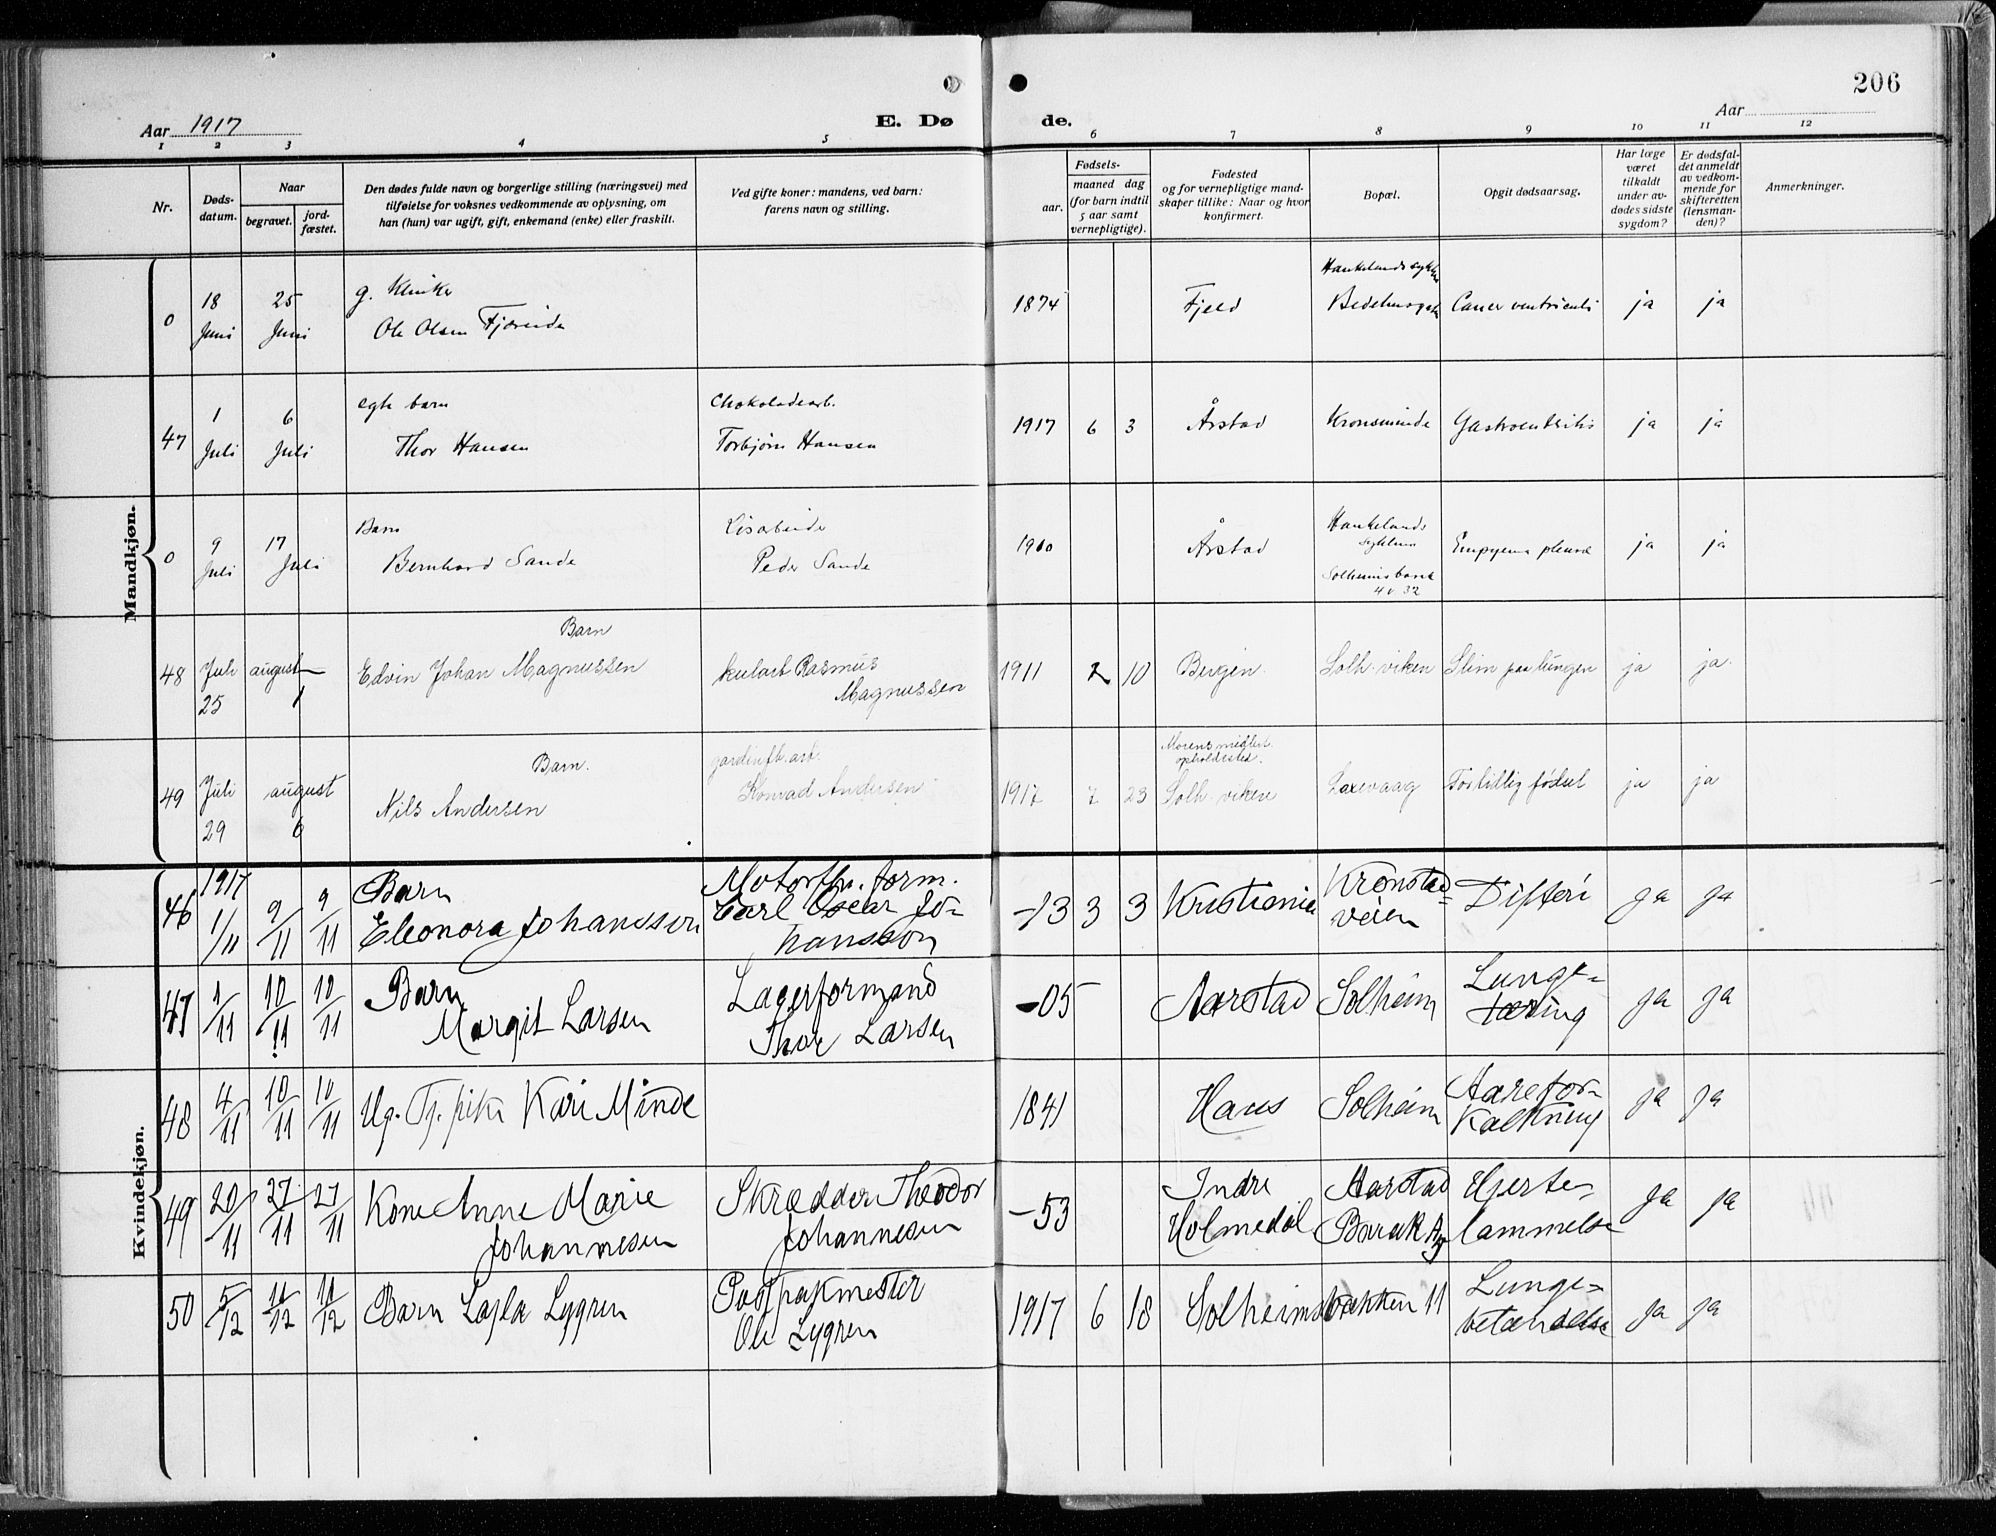 206
Aar 1917
E. Dø
de.
Aar
1 2 3 4 5 6 7 8 9 10 11 12
Nr.
Døds-
datum.
Naar
begravet.
jord-
fæstet.
Den dødes fulde navn og borgerlige stilling (næringsvei) med
tilføielse for voksnes vedkommende av oplysning, om
han (hun) var ugift, gift, enkemand (enke) eller fraskilt.
Ved gifte koner: mandens, ved barn:
farens navn og stilling.
Fødsels-
aar.
maaned dag
(for barn indtil
5 aar samt
vernepligtige).
Fødested
og for vernepligtige mand-
skaper tillike: Naar og hvor
konfirmert.
Bopæl.
Opgit dødsaarsag.
Har læge
været
tilkaldt
under av-
dødes sidste
sygdom?
Er dødsfal-
det anmeldt
av vedkom-
mende for
skifteretten
(lensman-
den)?
Anmerkninger.
Mandkjøn.
0
18
Juni
25
Juni
g.
Ole Olsen
1874
Fjeld
ja
ja
47
1
Juli
6
Juli
egte barn
Thor Hansen
Chokoladearb.
Torbjørn Hansen
1917 6 3
Årstad
Kronsminde
Gastroenteritis
ja
ja
0
9
Juli
17
Juli
Barn
Bernhard Sande
Peder Sande
1900
Årstad
Haukelands
Empyema pleuræ
ja
ja
48
Juli
25
august
1
Barn
Edvin Johan Magnussen
Rasmus
Magnussen
1911
10
Bergen
Solh. viken
Slim paa lungen
ja
ja
49
Juli
29
august
6
Barn.
Nils Andersen
Konrad Andersen
1917 7 23
Solh. viken
Laxevaag
For tidlig fødsel
ja
ja
Kvindekjøn.
46
1917
1/11
9/11
9/11
Barn
Eleonora Johansson
Motorfbr. form.
Carl Oscar Jo-
hansson
-13 3 3
Kristiania
Kronstad-
veien
Difteri
ja
ja
47
1/11
10/11
10/11
Barn
Margit Larsen
Lagerformand
Thor Larsen
-05
Aarstad
Solheim
Lunge-
tæring
ja
ja
48
4/11
10/11
10/11
Ug. Tj. pike Kari Minde
1841
Haus
Solheim
Aarefor-
kalkning
ja
ja
49
20/11
27/11
27/11
Kone Anne Marie
Johannesen
Skrædder Theodor
Johannesen
-53
Indre
Holmedal
Aarstad
Barak
Hjerte-
lammelse
ja
ja
50
5/12
11/12
11/12
Barn Lajla Lygren
Postpakmester
Ole Lygren
1917 6 18
Solheimsbakken 11
Lunge-
betændelse
ja
ja